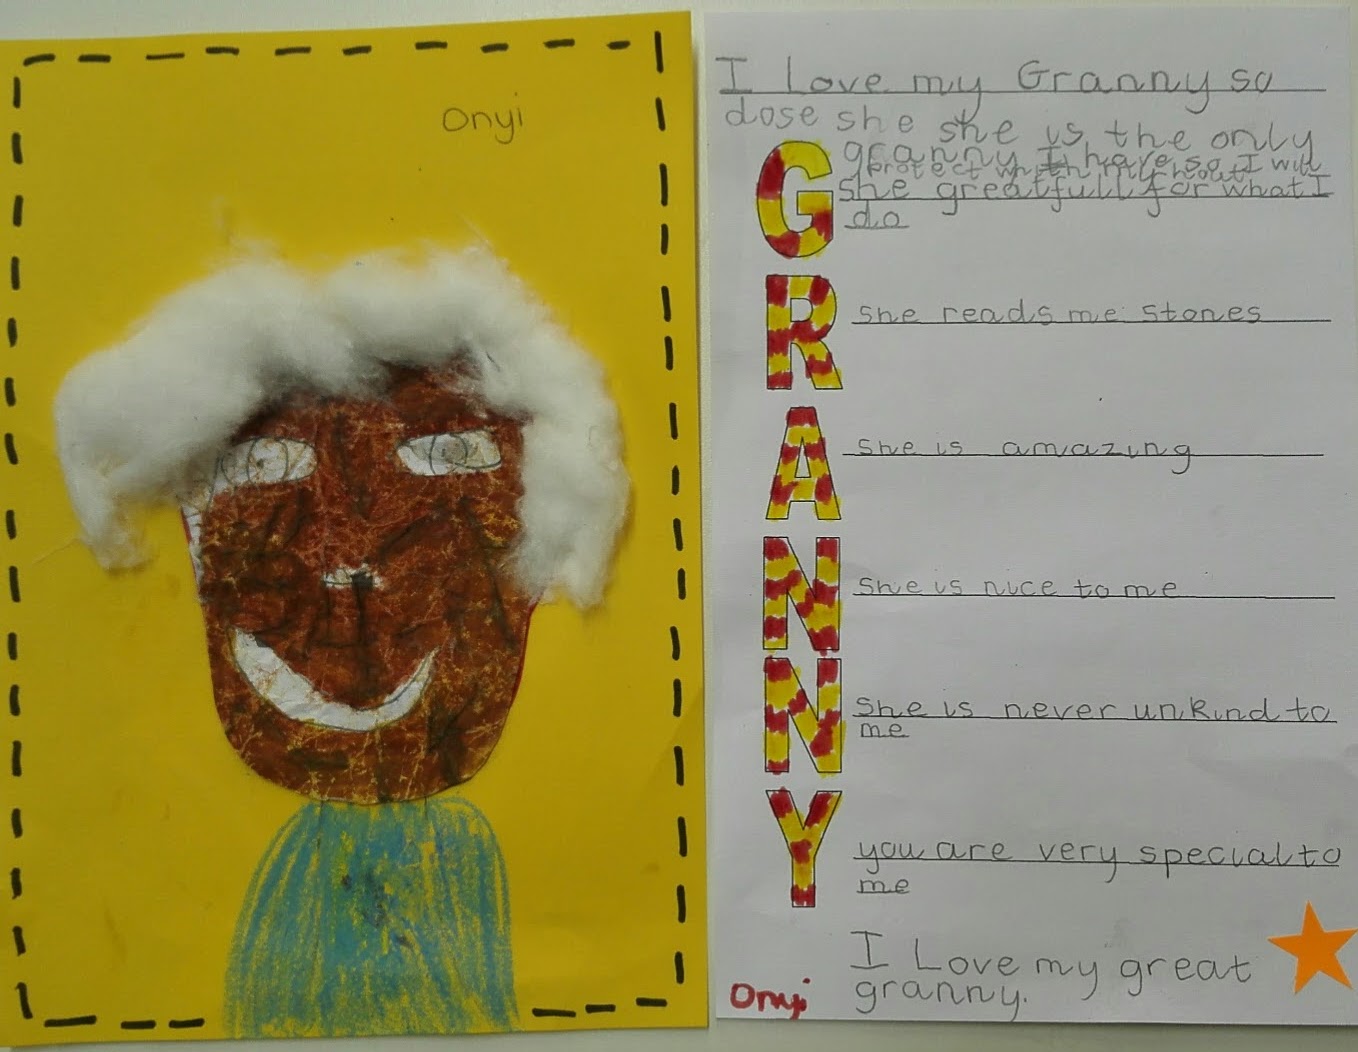 Onyi
I Love my Granny so
dose she she is the only
granny I have so I will
protect
she greatfull for what I
do
G
R she reads me stories
A she is amazing
N she is nice to me
N she is never unkind to
me
Y you are very special to
me
I Love my great
granny.
Onyi